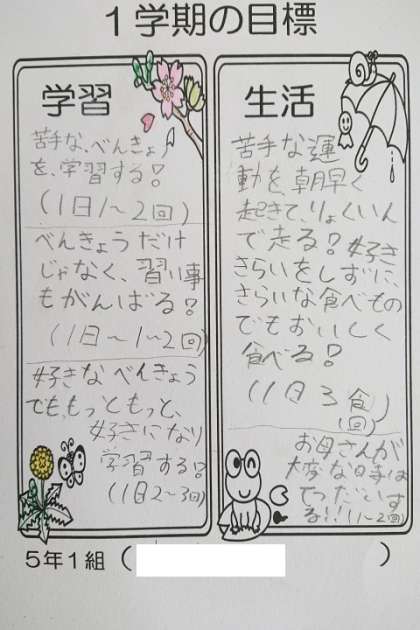 1学期の目標
学習
苦手な、べんきょう
を、学習する?
(1日1〜2回)
べんきょうだけ
じゃなく、習い事
もがんばる?
(1日〜1〜2回)
好きなべんきょう
でも、もっともっと、
好きになり
学習する?
(1日2〜3回)
生活
苦手な運
動を、朝早く
起きて、りょくいん
で走る?好き
きらいをしずに、
きらいな食べもの
でもおいしく
食べる?
(1日3食)
(回)
お母さんが
大変な日時は
てつだいす
る!!(1〜2回)
5年1組( )